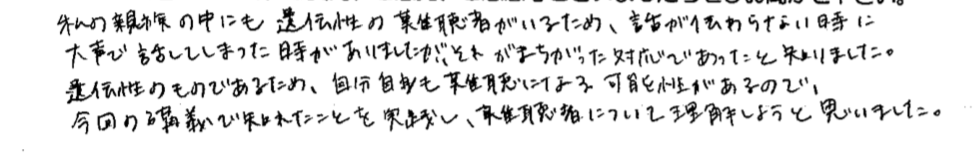 私の親族の中にも遺伝性の難聴者がいるため、話が伝わらない時に
大声で話してしまった時がありましたがそれがまちがった対応であったと知りました。
遺伝性のものであるため、自分自身も難聴になる可能性があるので、
今回の講義で知れたことを実践し、難聴者について理解しようと思いました。